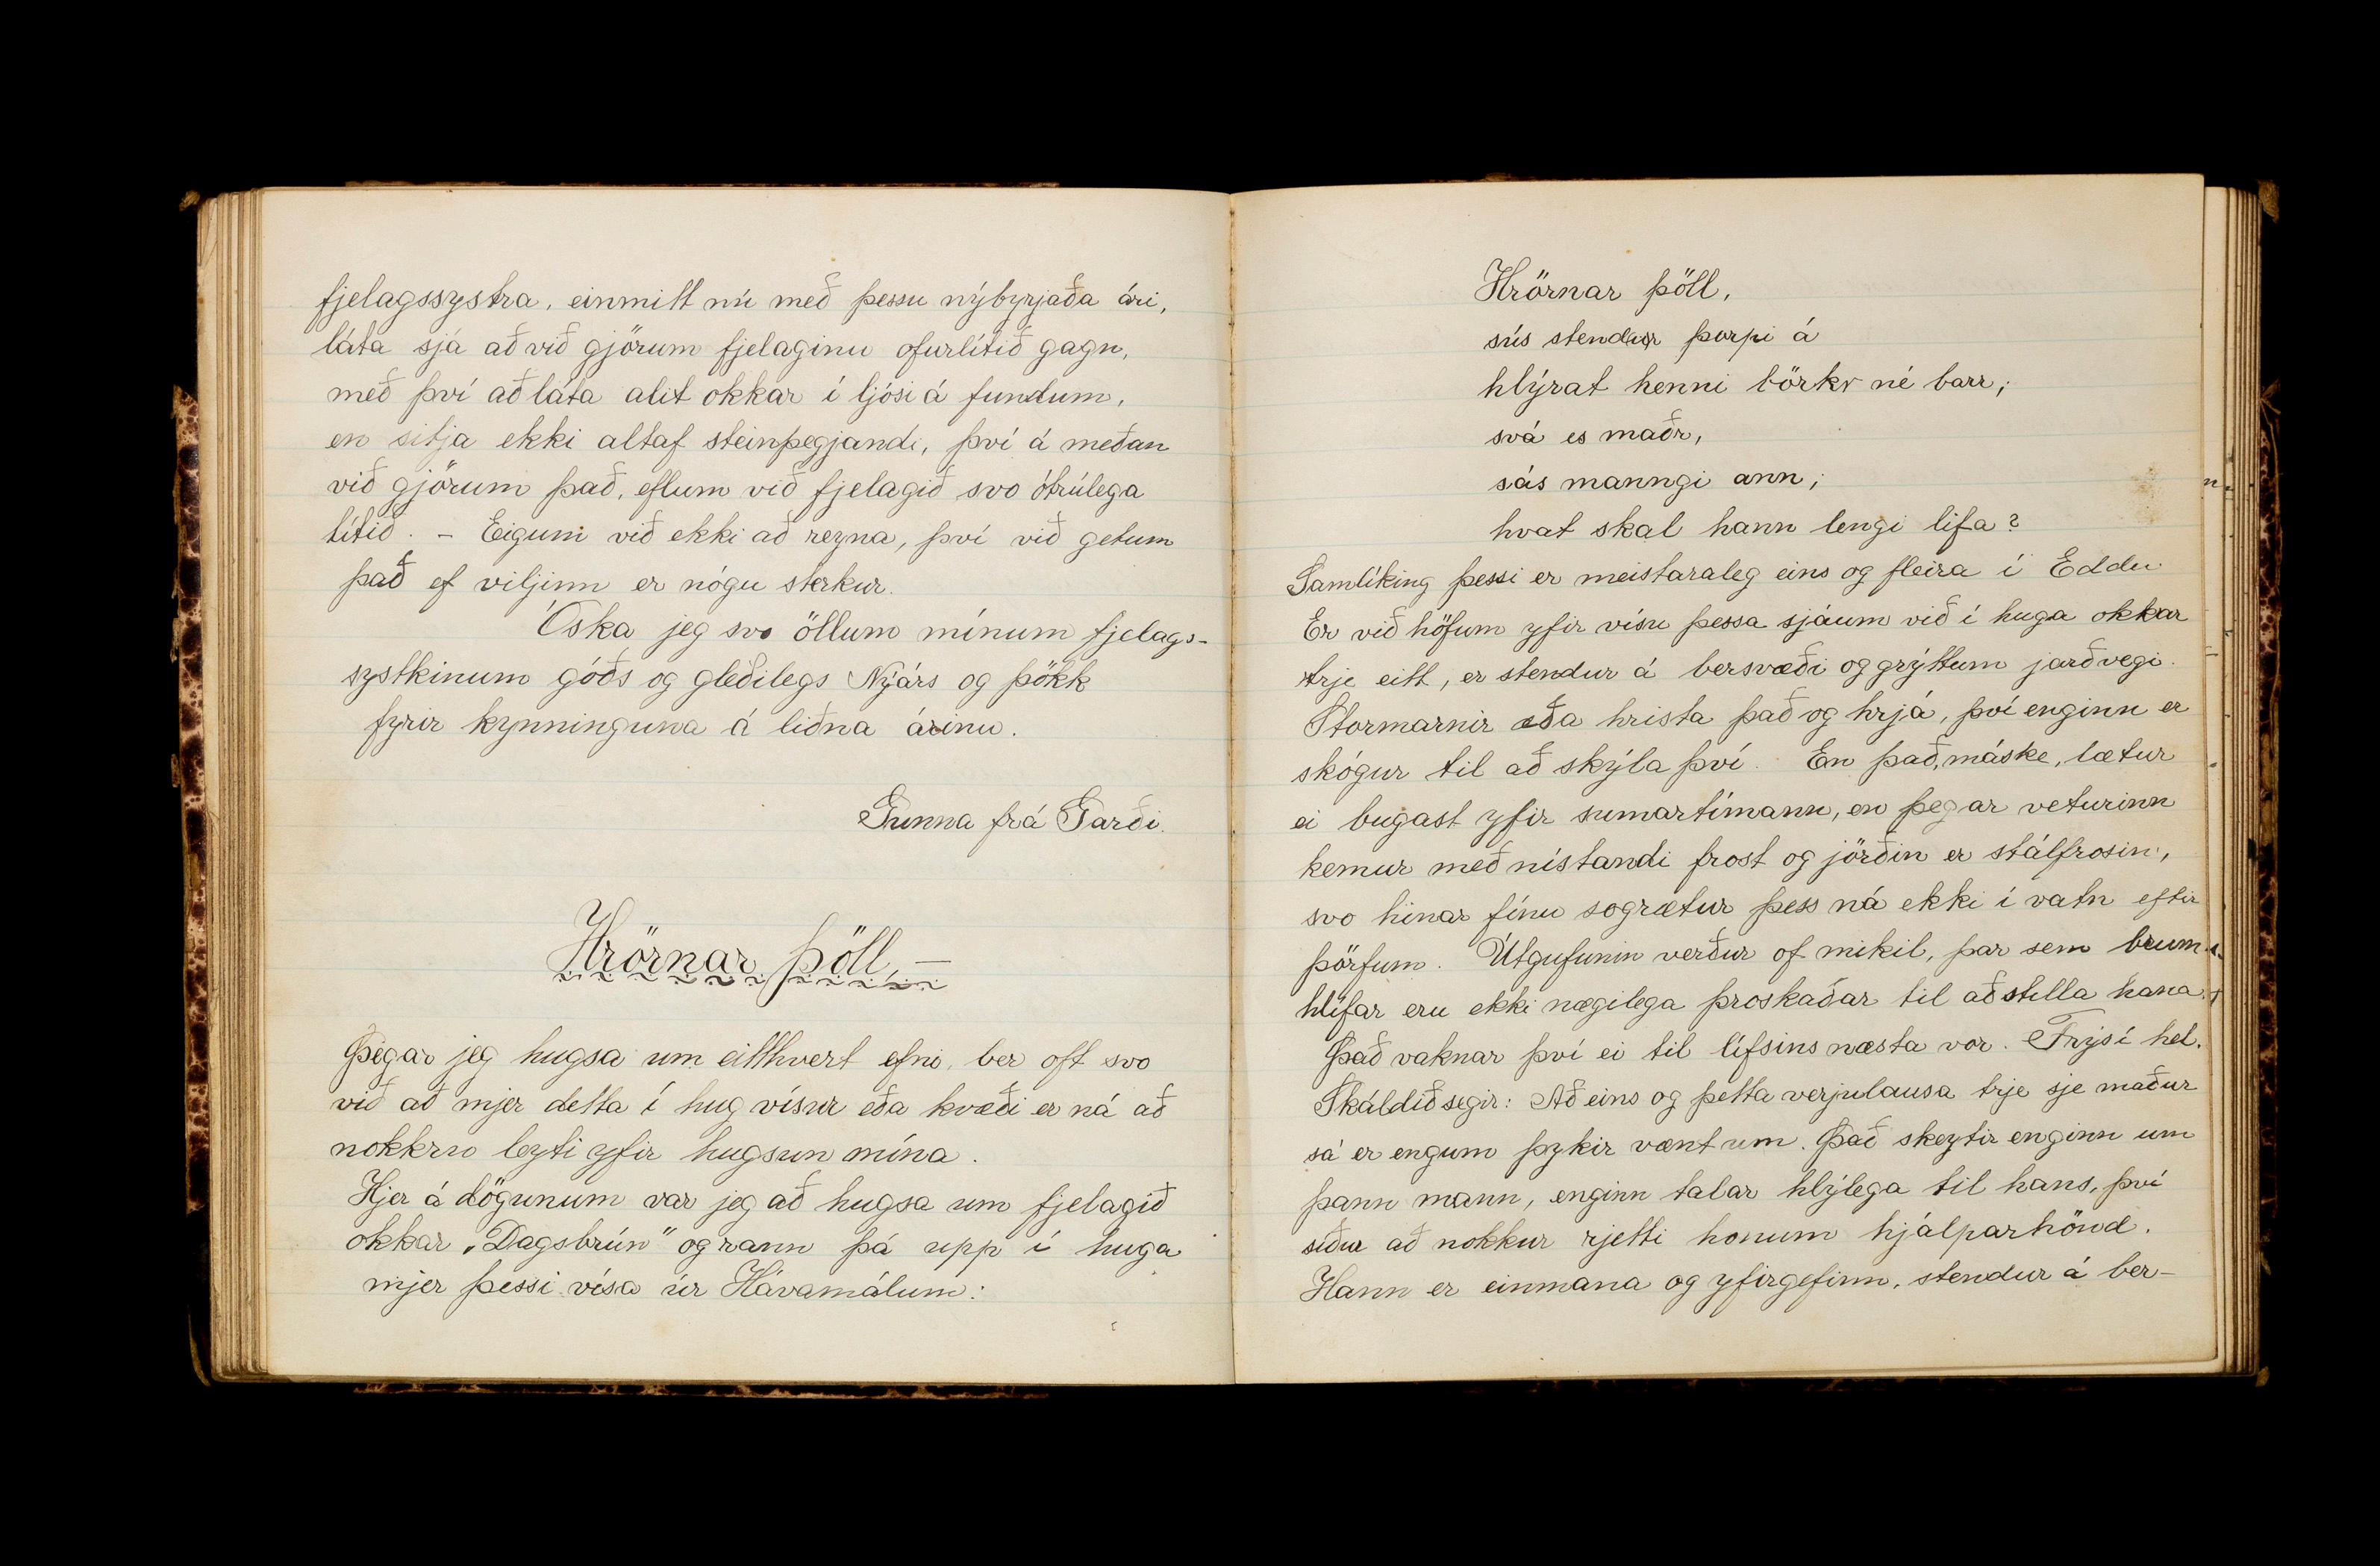 fjelagssystra, einmitt nú með þessu nýbyrjaða ári,
láta sjá að við gjörum fjelaginu ofurlítið gagn,
með því að láta alit okkar í ljósi á fundum,
en sitja ekki altaf steinþegjandi, því á meðan
við gjörum það, eflum við fjelagið svo ótrúlega
lítið. - Eigum við ekki að reyna, því við getum
það ef viljinn er nógu sterkur.
Óska jeg svo öllum mínum fjelags-
systkinum góðs og gleðilegs Nýárs og þökk
fyrir kynninguna á liðna árinu.
Gunna frá Garði.
Hrörnar þöll, —
Þegar jeg hugsa um eitthvert efni, ber oft svo
við að mjer detta í hug vísur eða kvæði er ná að
nokkru leyti yfir hugsun mína.
Hjer á dögunum var jeg að hugsa um fjelagið
okkar „Dagsbrún" og rann þá upp í huga
mjer þessi vísa úr Hávamálum:
Hrörnar þöll,
sús stendur þorpi á
hlýrat henni börkr né barr;
svá es maðr,
sás manngi ann;
hvat skal hann lengi lifa?
Samlíking þessi er meistaraleg eins og fleira í Eddu.
Er við höfum yfir vísu þessa sjáum við í huga okkar
trje eitt, er stendur á bersvæði og grýttum jarðvegi.
Stormarnir æða hrista það og hrjá, því enginn er
skógur til að skýla því. En það, máske, lætur
ei bugast yfir sumartímann, en þegar veturinn
kemur með nístandi frost og jörðin er stálfrosin,
svo hinar fínu sogrætur þess ná ekki í vatn eftir
þörfum. Útgufunin verður of mikil, þar sem brum-
hlífar eru ekki nægilega þroskaðar til að stilla hana.
Það vaknar því ei til lífsins næsta vor. Frýs í hel.
Skáldið segir: Að eins og þetta verjulausa trje sje maður
sá er engum þykir vænt um. Það skeytir enginn um
þann mann, enginn talar hlýlega til hans, því
síður að nokkur rjetti honum hjálparhönd.
Hann er einmana og yfirgefinn, stendur á ber-